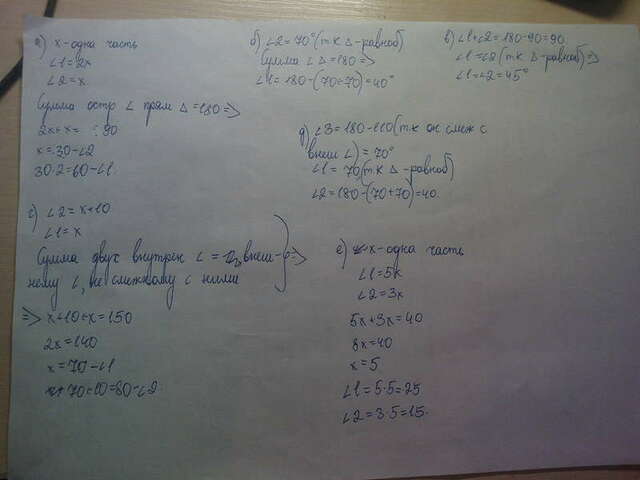 а) x-одна часть
∠1=2x
∠2=x
Сумма остр ∠ прям △=180=>
2x+x= :90
x=30-∠2
30·2=60-∠1
б) ∠2=70°(т.к △-равноб)
Сумма ∠ △=180=>
∠1=180-(70+70)=40°
в) ∠1+∠2=180-90=90
∠1=∠2(т.к △-равноб)=>
∠1=∠2=45°
д) ∠3=180-110(т.к он смеж с
внеш ∠)=70°
∠1=70(т.к △-равноб)
∠2=180-(70+70)=40
г) ∠2=x+10
∠1=x
Сумма двух внутрен ∠= внеш-
нему ∠, не смежному с ними
=>
=> x+10+x=150
2x=140
x=70-∠1
70+10=80-∠2
е) x-одна часть
∠1=5x
∠2=3x
5x+3x=40
8x=40
x=5
∠1=5·5=25
∠2=3·5=15